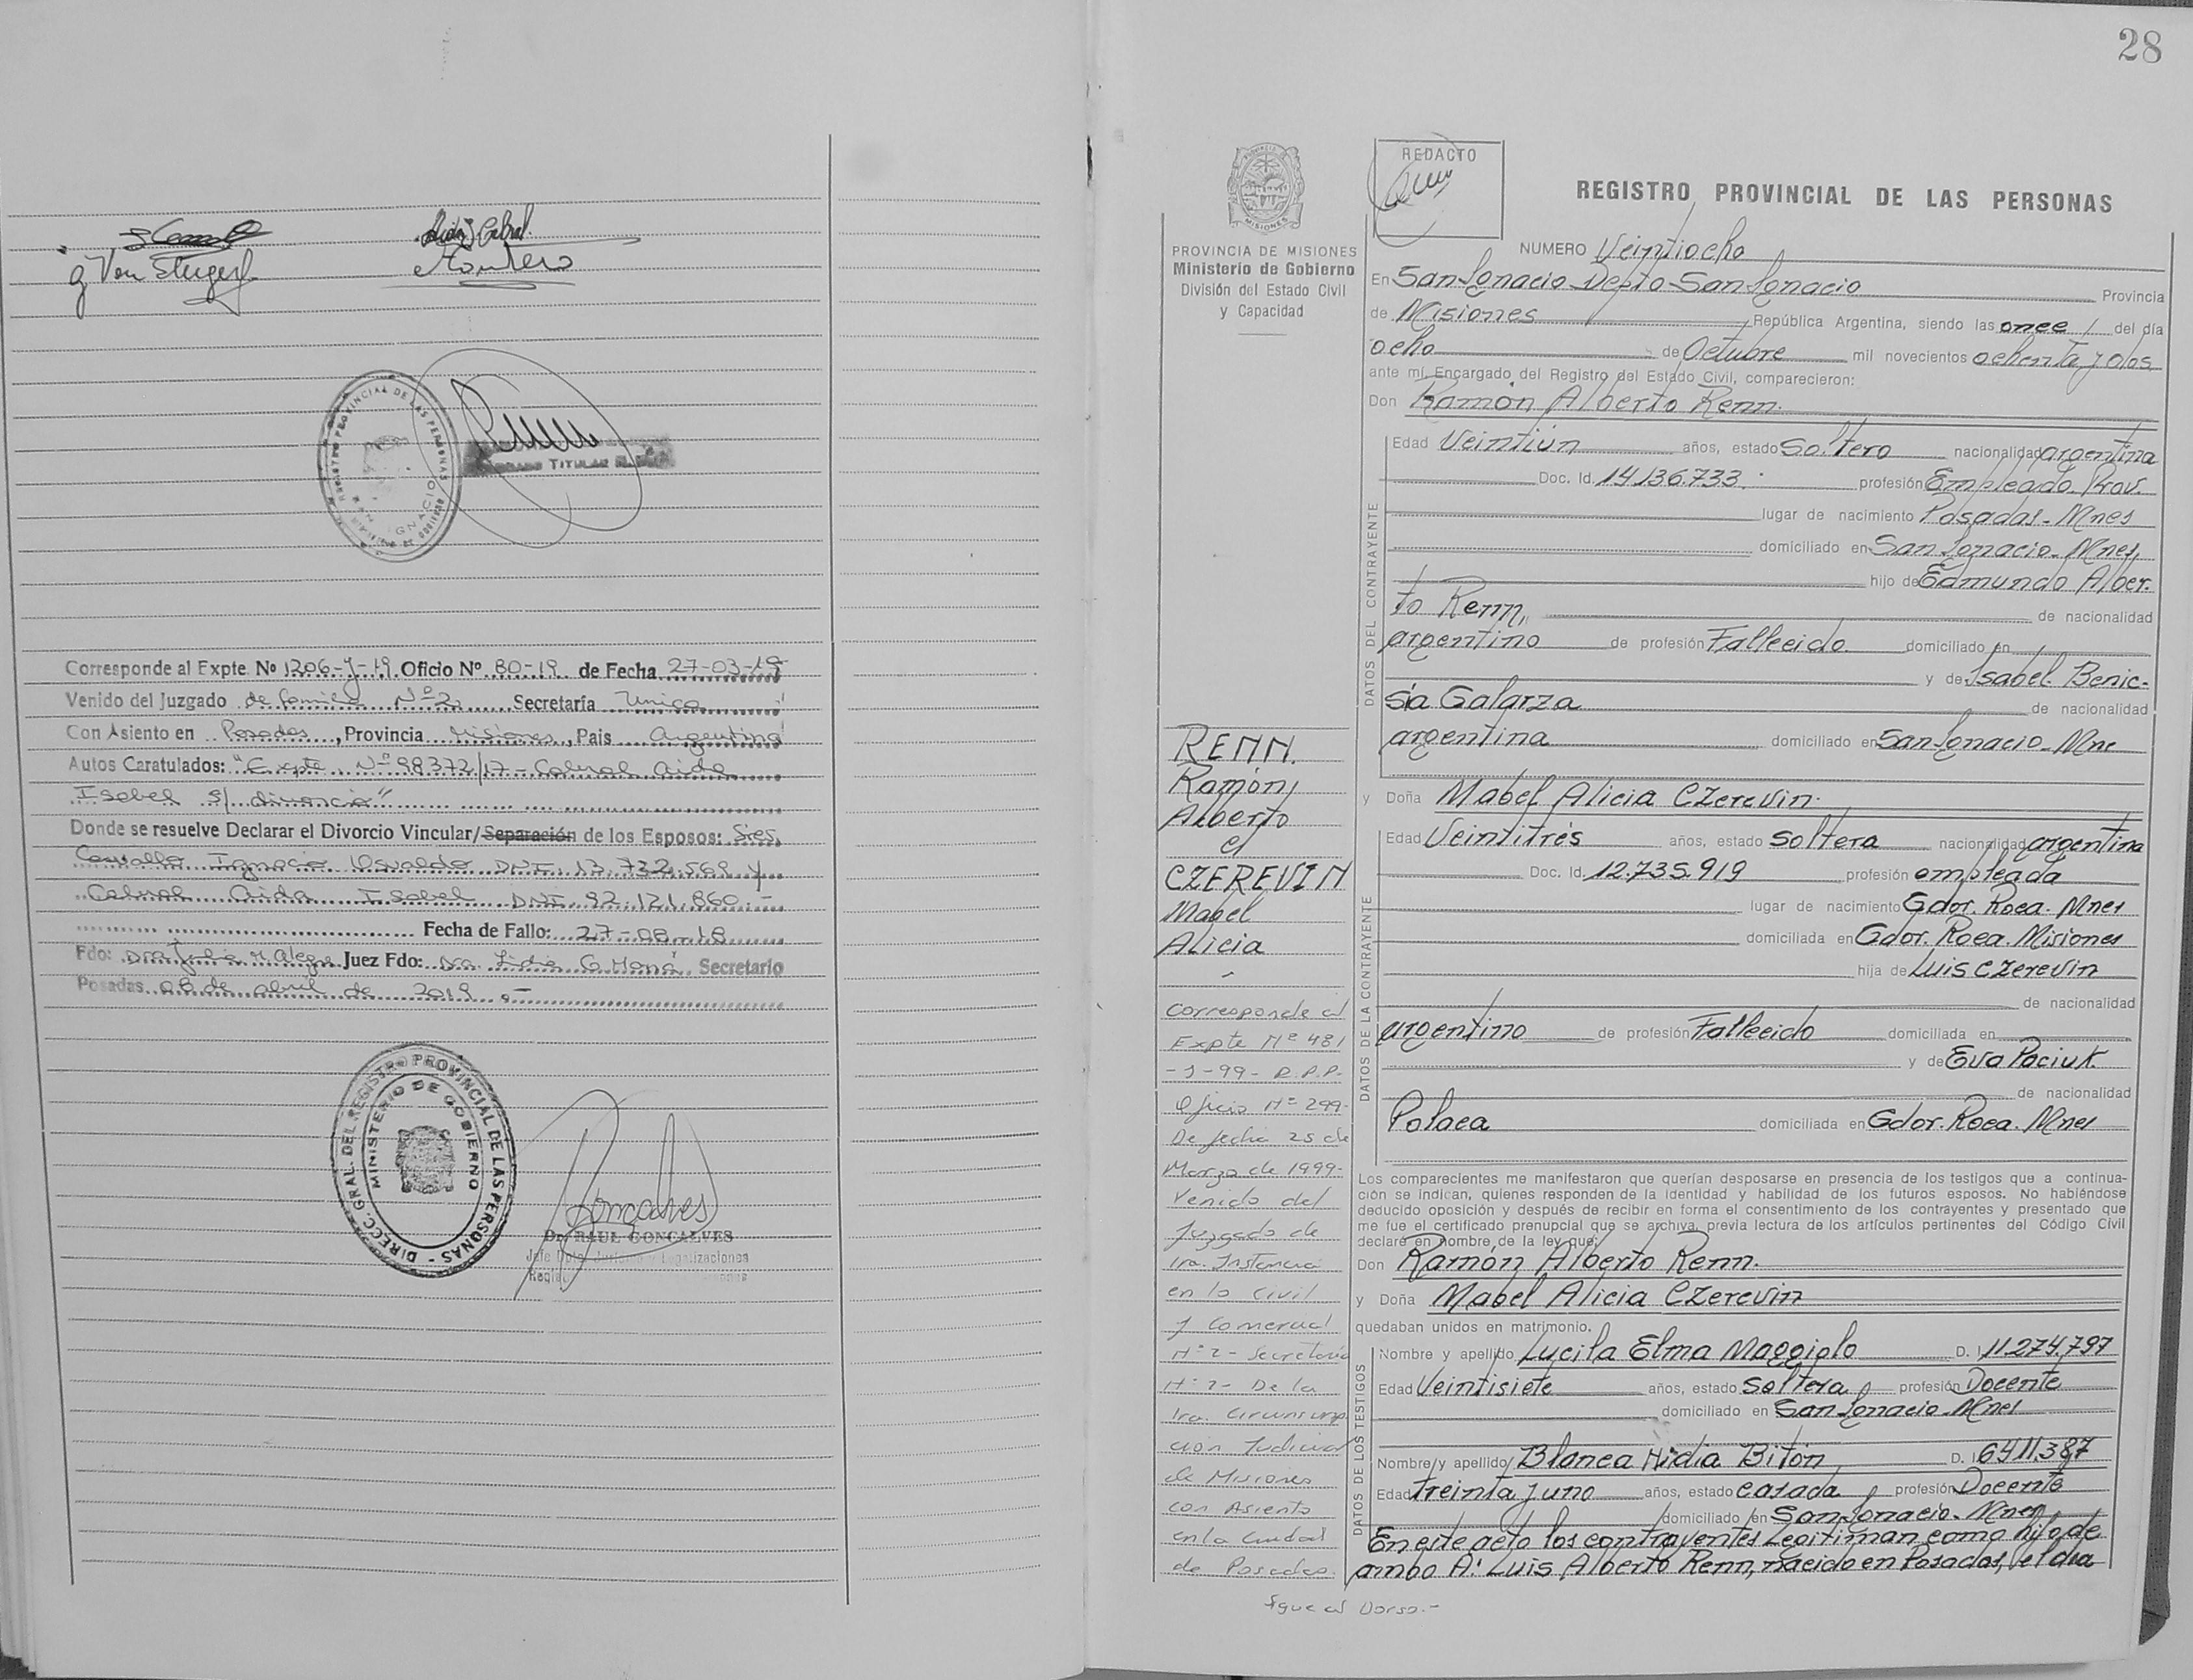 28
Aida J. Cabral
G Von
Montero
REGISTRO PROVINCIAL DE LAS PERSONAS
SAN IGNACIO
TITULAR
Corresponde al Expte. Nº 1206-J-19 Oficio Nº 80-19 de Fecha 27-03-19
Venido del Juzgado de familia Nº 2 Secretaría Unica
Con Asiento en Posadas, Provincia Misiones, Pais Argentina
Autos Caratulados: "Expte. Nº 98372/17 - Cabral Aida
Isabel s/ divorcio"
Donde se resuelve Declarar el Divorcio Vincular/Separación de los Esposos: Sres.
Ignacio Osvaldo DNI. 13.732.569 y
Cabral Aida Isabel DNI. 92.121.860.-
Fecha de Fallo: 27-08-18
Fdo: Dra Julia M Alegre Juez Fdo: Dra. Lidia G. Secretario
Posadas 08 de abril de 2019.-
DIRECC. GRAL. DEL REGISTRO PROVINCIAL DE LAS PERSONAS
MINISTERIO DE GOBIERNO
Goncalves
Dr. RAUL GONCALVES
Jefe Dpto. Jurídico y Legalizaciones
PROVINCIA DE MISIONES
Ministerio de Gobierno
División del Estado Civil
y Capacidad
RENN.
Ramón
Alberto
c/
CZEREVIN
Mabel
Alicia
-
Corresponde al
Expte Nº 481
-J-99- R.P.P.
Oficio Nº 299-
De fecha 25 de
Marzo de 1999-
Venido del
Juzgado de
1ra. Instancia
en lo Civil
y Comercial
Nº 2 - Secretaría
Nº 2 - De la
1ra. Circunscrip
ción Judicial
de Misiones
con Asiento
en la Ciudad
de Posadas.
Sigue al Dorso.-
REDACTO
REGISTRO PROVINCIAL DE LAS PERSONAS
NUMERO Veintiocho
En San Ignacio Depto San Ignacio Provincia
de Misiones República Argentina, siendo las once del día
ocho de Octubre mil novecientos ochenta y dos
ante mí, Encargado del Registro del Estado Civil, comparecieron:
Don Ramón Alberto Renn.
DATOS DEL CONTRAYENTE
Edad Veintiún años, estado Soltero nacionalidad argentina
Doc. Id. 14.136.733. profesión Empleado Prov.
lugar de nacimiento Posadas - Mnes
domiciliado en San Ignacio - Mnes,
hijo de Edmundo Alber-
to Renn, de nacionalidad
argentino de profesión Fallecido domiciliado en
y de Isabel Benic-
sia Galarza de nacionalidad
argentina domiciliado en San Ignacio - Mne
y Doña Mabel Alicia Czerevin.
DATOS DE LA CONTRAYENTE
Edad Veintitrés años, estado soltera nacionalidad argentina
Doc. Id. 12.735.919 profesión empleada
lugar de nacimiento Gdor. Roca. Mnes
domiciliada en Gdor. Roca. Misiones
hija de Luis Czerevin
de nacionalidad
argentino de profesión Fallecido domiciliada en
y de Eva Paciuk
de nacionalidad
Polaca domiciliada en Gdor. Roca. Mnes
Los comparecientes me manifestaron que querían desposarse en presencia de los testigos que a continua-
ción se indican, quienes responden de la identidad y habilidad de los futuros esposos. No habiéndose
deducido oposición y después de recibir en forma el consentimiento de los contrayentes y presentado que
me fue el certificado prenupcial que se archiva, previa lectura de los artículos pertinentes del Código Civil
declaré en nombre de la ley que:
Don Ramón Alberto Renn.
y Doña Mabel Alicia Czerevin
quedaban unidos en matrimonio.
DATOS DE LOS TESTIGOS
Nombre y apellido Lucila Elma Maggiolo D. I. 11.274.797
Edad Veintisiete años, estado soltera profesión Docente
domiciliado en San Ignacio - Mnes
Nombre y apellido Blanca Nidia Bitón D. I. 6.411.387
Edad treinta y uno años, estado casada profesión Docente
domiciliado en San Ignacio - Mnes
En este acto los contrayentes Legitiman como hijo de
ambo A: Luis Alberto Renn, nacido en Posadas, el día